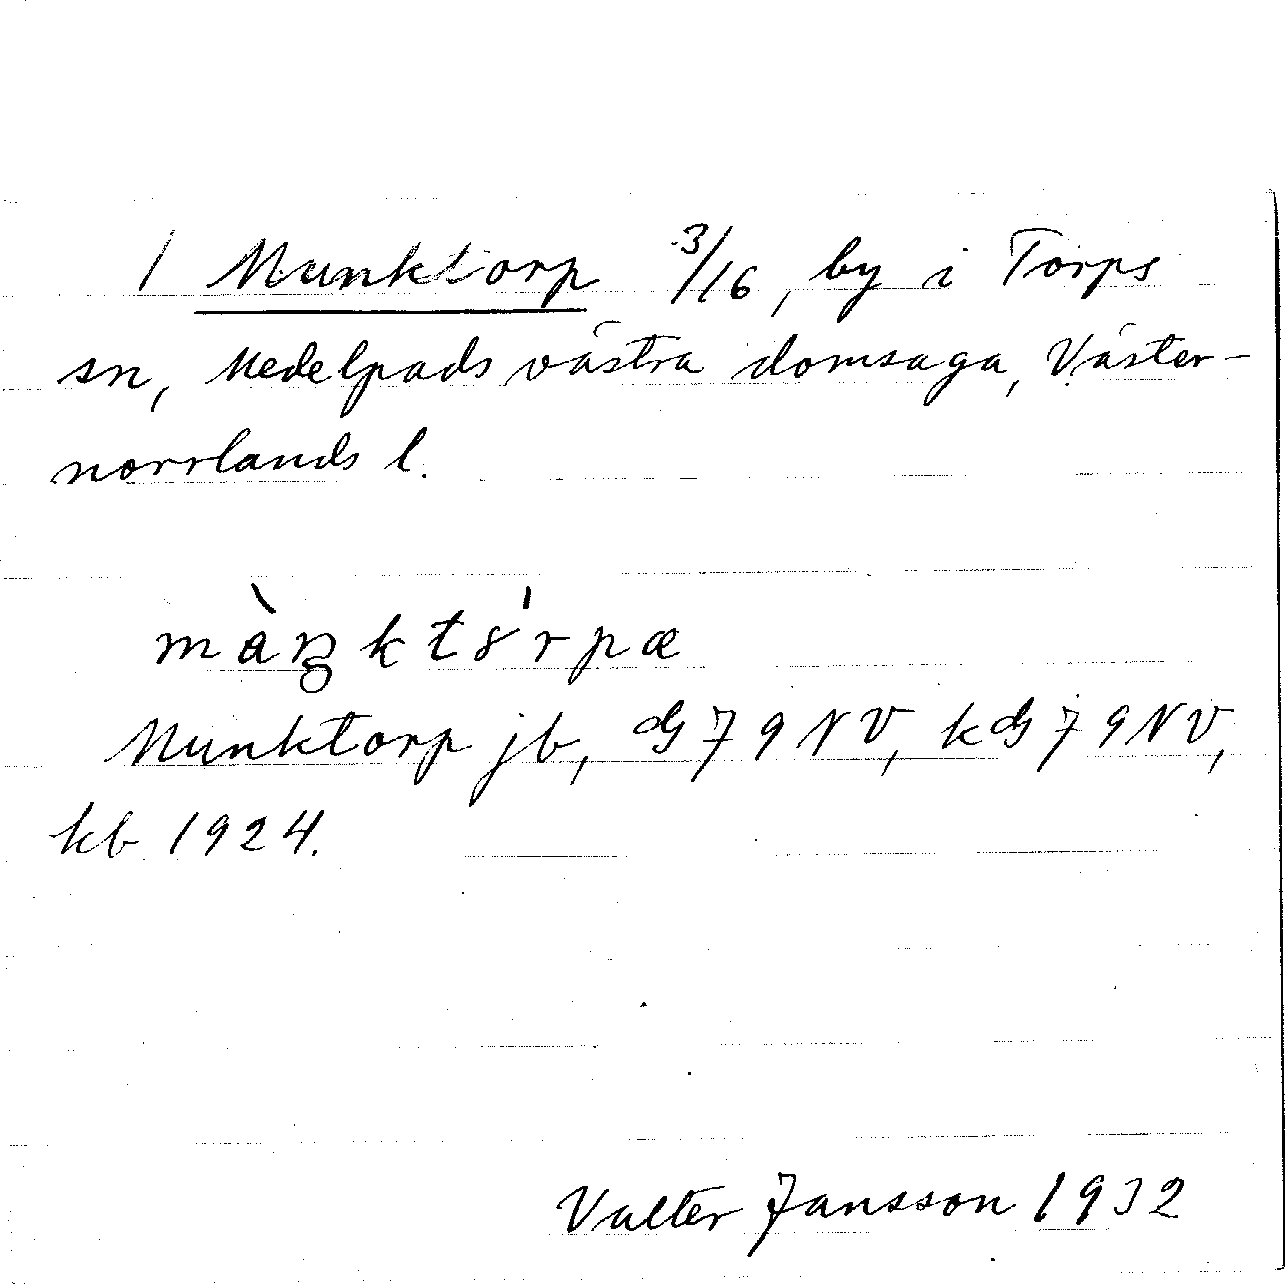 1 Munktorp 3/16, by i Torps
sn, Medelpads västra domsaga, Väster-
norrlands l.
Munktorp jb, G 79 NV, kG 79 NV,
kb 1924.
Valter Jansson 1932